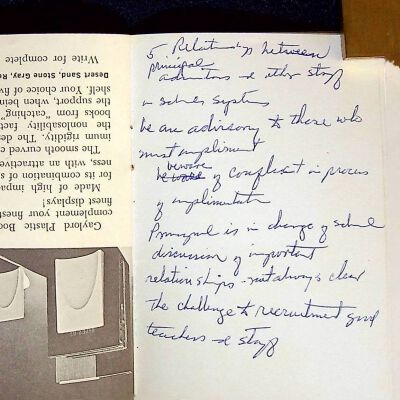 5. Relationships between
principal
administrators & other staff
in school systems
We are advisory to those who
must impliment
beware
beware of complaint in process
of implimentation
Principal is in charge of school
discussion of important
relationships - not always clear
The challenge to recruitment good
teachers & staff
Gaylord Plastic Boo
complement your finest
finest displays!
Made of high impa
for its combination of s
ness, with an attractive
The smooth curved c
imum rigidity. The de
the nonslosability fact
books from "catching"
the support, when being
shelf. Your choice of fiv
Desert Sand, Stone Gray, Re
Write for complete